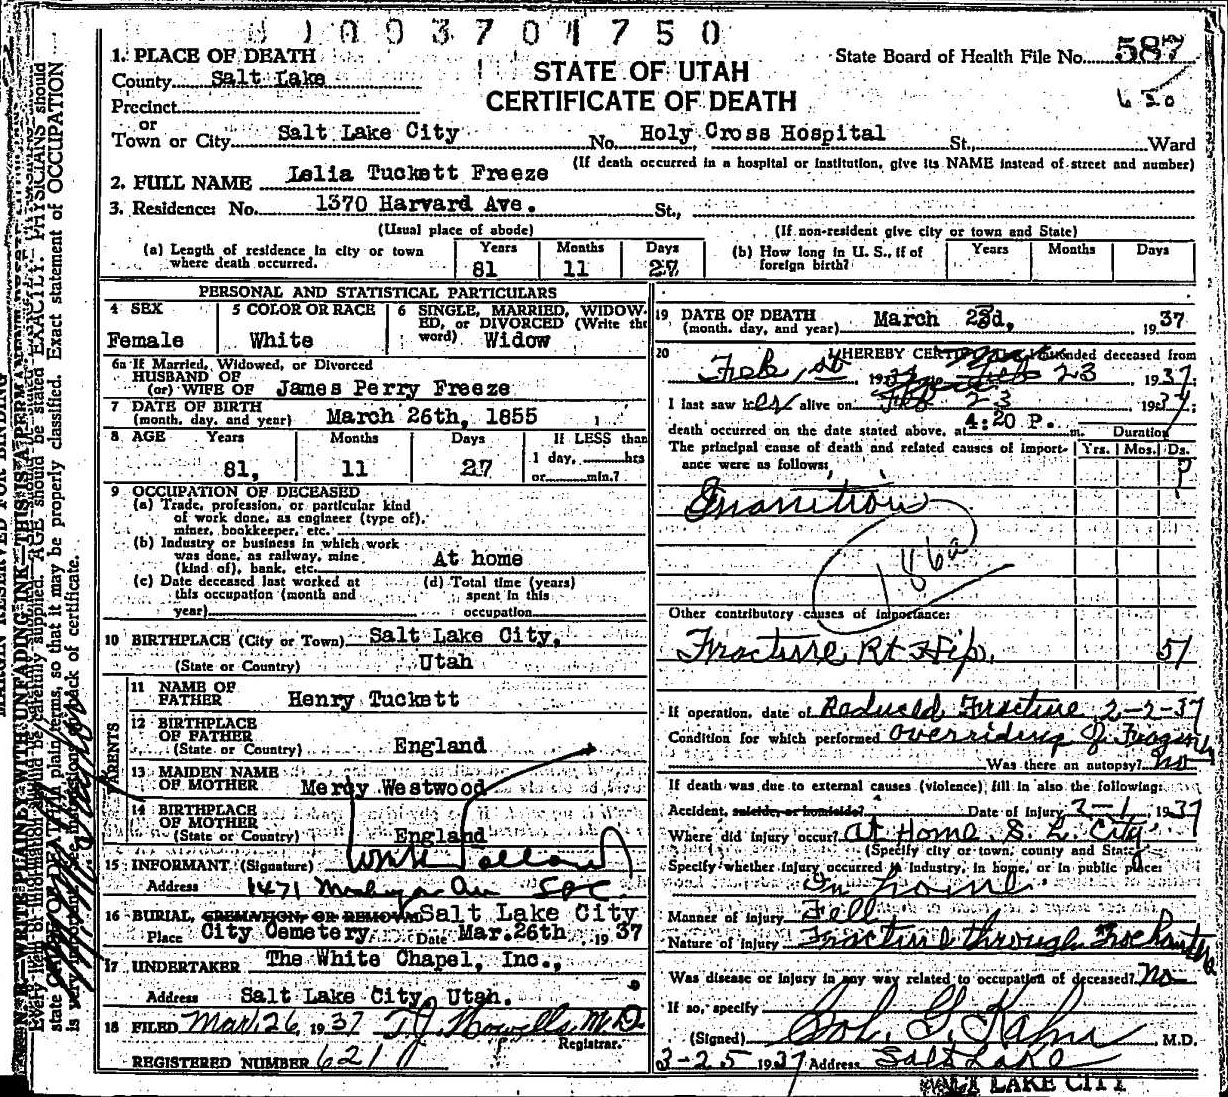 1003701750
1. PLACE OF DEATH
State Board of Health File No. 587
County Salt Lake
STATE OF UTAH
620
Precinct
CERTIFICATE OF DEATH
or
Town or City Salt Lake City No. Holy Cross Hospital St., Ward
(If death occurred in a hospital or institution, give its NAME instead of street and number)
2. FULL NAME Lelia Tuckett Freeze
3. Residence: No. 1370 Harvard Ave. St.,
(Usual place of abode) (If non-resident give city or town and State)
(a) Length of residence in city or town where death occurred. Years 81 Months 11 Days 27
(b) How long in U. S., if of foreign birth? Years Months Days
PERSONAL AND STATISTICAL PARTICULARS
4 SEX Female
5 COLOR OR RACE White
6 SINGLE, MARRIED, WIDOWED, or DIVORCED (Write the word) Widow
6a If Married, Widowed, or Divorced
HUSBAND OF
(or) WIFE OF James Perry Freeze
7 DATE OF BIRTH
(month, day, and year) March 26th, 1855
8 AGE Years Months Days If LESS than
81, 11 27 1 day, hrs
or min.?
9 OCCUPATION OF DECEASED
(a) Trade, profession, or particular kind
of work done, as engineer (type of),
miner, bookkeeper, etc.
(b) Industry or business in which work
was done, as railway, mine
(kind of), bank, etc. At home
(c) Date deceased last worked at
this occupation (month and
year)
(d) Total time (years)
spent in this
occupation
10 BIRTHPLACE (City or Town) Salt Lake City,
(State or Country) Utah
PARENTS
11 NAME OF
FATHER Henry Tuckett
12 BIRTHPLACE
OF FATHER
(State or Country) England
13 MAIDEN NAME
OF MOTHER Mercy Westwood
14 BIRTHPLACE
OF MOTHER
(State or Country) England
15 INFORMANT (Signature)
Address 1471
16 BURIAL, CREMATION, OR REMOVAL Salt Lake City
Place City Cemetery Date Mar. 26th, 1937
17 UNDERTAKER The White Chapel, Inc.,
Address Salt Lake City, Utah.
18 FILED Mar. 26, 1937 T.J. Howells, M.D.
Registrar.
REGISTERED NUMBER 621
19 DATE OF DEATH
(month, day, and year) March 23d, 1937
20 I HEREBY CERTIFY, That I attended deceased from
Feb, 23, 1937
I last saw her alive on 23 1937;
death occurred on the date stated above, at 4:20 P. m. Duration
The principal cause of death and related causes of importance were as follows: Yrs. Mos. Ds.
?
Inanition
186a
Other contributory causes of importance:
Fracture Rt Hip. 51
If operation, date of Reduced Fracture 2-2-37
Condition for which performed overriding of
Was there an autopsy? no
If death was due to external causes (violence) fill in also the following:
Accident, suicide, or homicide? Date of Injury 2-1, 1937
Where did injury occur? at Home S. L. City
(Specify city or town, county and State)
Specify whether injury occurred in industry, in home, or in public place:
In home
Manner of injury Fell
Nature of Injury Fracture through Trochanter
Was disease or injury in any way related to occupation of deceased? No
If so, specify
(Signed) Sol. G. Kahn M.D.
3-25 1937 Address Salt Lake
SALT LAKE CITY
MARGIN RESERVED FOR BINDING
N. B.—WRITE PLAINLY WITH UNFADING INK—THIS IS A PERMANENT
Every item of information should be carefully supplied. AGE should be stated EXACTLY. PHYSICIANS should
state CAUSE OF DEATH in plain terms, so that it may be properly classified. Exact statement of OCCUPATION
is very important. See instructions on back of certificate.